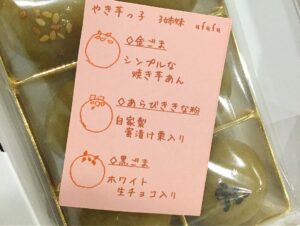 やき芋っ子 3姉妹 ufufu
◇金ごま
シンプルな
焼き芋あん
◇あらびききな粉
自家製
蜜漬け栗入り
◇黒ごま
ホワイト
生チョコ入り